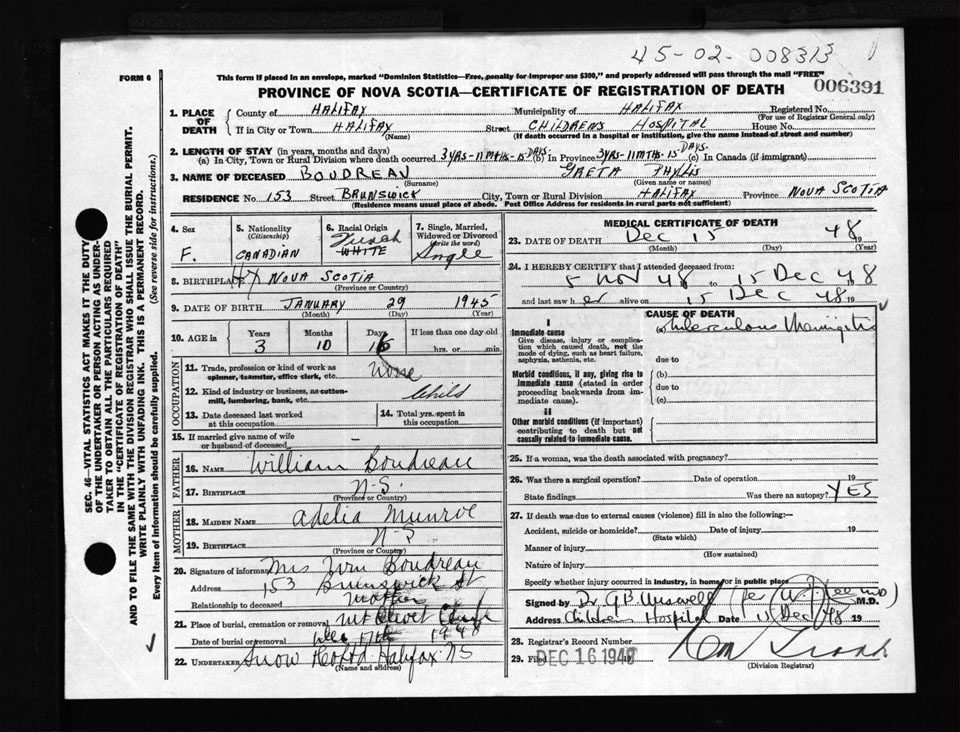 45-02-008313
FORM 6
This form if placed in an envelope, marked "Dominion Statistics—Free, penalty for improper use $300," and properly addressed will pass through the mail "FREE"
006391
PROVINCE OF NOVA SCOTIA—CERTIFICATE OF REGISTRATION OF DEATH
1. PLACE OF DEATH
County of HALIFAX Municipality of HALIFAX Registered No.
(For use of Registrar General only)
If in City or Town HALIFAX Street CHILDREN'S HOSPITAL House No.
(Name) (If death occurred in a hospital or institution, give the name instead of street and number)
2. LENGTH OF STAY (in years, months and days)
(a) In City, Town or Rural Division where death occurred 3 YRS-11 MTHS-15 DAYS (b) In Province 3 YRS-11 MTHS-15 DAYS. (c) In Canada (if immigrant)
3. NAME OF DECEASED BOUDREAU GRETA PHYLLIS
(Surname) (Given name or names)
RESIDENCE No 153 Street BRUNSWICK City, Town or Rural Division HALIFAX Province NOVA SCOTIA
(Residence means usual place of abode. Post Office Address for residents in rural parts not sufficient)
4. Sex
F.
5. Nationality
(Citizenship)
CANADIAN
6. Racial Origin
French
WHITE
7. Single, Married, Widowed or Divorced
(write the word)
Single
8. BIRTHPLACE HX NOVA SCOTIA
(Province or Country)
9. DATE OF BIRTH JANUARY 29 1945
(Month) (Day) (Year)
10. AGE in
Years Months Days If less than one day old
3 10 16 hrs. or min.
OCCUPATION
11. Trade, profession or kind of work as spinner, teamster, office clerk, etc. None
12. Kind of industry or business, as cotton-mill, lumbering, bank, etc. Child
13. Date deceased last worked at this occupation
14. Total yrs. spent in this occupation
15. If married give name of wife or husband of deceased —
FATHER
16. NAME William Boudreau
17. BIRTHPLACE N-S.
(Province or Country)
MOTHER
18. MAIDEN NAME Adelia Munroe
19. BIRTHPLACE N-S
(Province or Country)
20. Signature of informant Mrs Wm Boudreau
Address 153 Brunswick St
Relationship to deceased Mother
21. Place of burial, cremation or removal Mt Olivet
Date of burial or removal Dec 17th 1948
22. UNDERTAKER Snow Halifax NS
(Name and address)
MEDICAL CERTIFICATE OF DEATH
23. DATE OF DEATH Dec 15 48 19
(Month) (Day) (Year)
24. I HEREBY CERTIFY that I attended deceased from:
5 Nov 48 to 15 Dec 48
and last saw her alive on 15 Dec 48 19
CAUSE OF DEATH
I
Immediate cause
Give disease, injury or complication which caused death, not the mode of dying, such as heart failure, asphyxia, asthenia, etc.
(a) Tuberculous Meningitis
due to
Morbid conditions, if any, giving rise to immediate cause (stated in order proceeding backwards from immediate cause).
(b)
due to
(c)
II
Other morbid conditions (if important) contributing to death but not causally related to immediate cause.
25. If a woman, was the death associated with pregnancy?
26. Was there a surgical operation? Date of operation 19
State findings Was there an autopsy? YES
27. If death was due to external causes (violence) fill in also the following:—
Accident, suicide or homicide? Date of injury 19
(State which)
Manner of injury
(How sustained)
Nature of injury
Specify whether injury occurred in industry, in home or in public place
Signed by Dr G.B. Wiswell (per M.D.) M.D.
Address Childrens Hospital Date 15 Dec 48 19
28. Registrar's Record Number
29. Filed DEC 16 1948
(Division Registrar)
SEC. 46—VITAL STATISTICS ACT MAKES IT THE DUTY
OF THE UNDERTAKER OR PERSON ACTING AS UNDER-
TAKER TO OBTAIN ALL THE PARTICULARS REQUIRED
IN THE "CERTIFICATE OF REGISTRATION OF DEATH"
AND TO FILE THE SAME WITH THE DIVISION REGISTRAR WHO SHALL ISSUE THE BURIAL PERMIT.
WRITE PLAINLY WITH UNFADING INK. THIS IS A PERMANENT RECORD.
Every item of information should be carefully supplied. (See reverse side for instructions.)